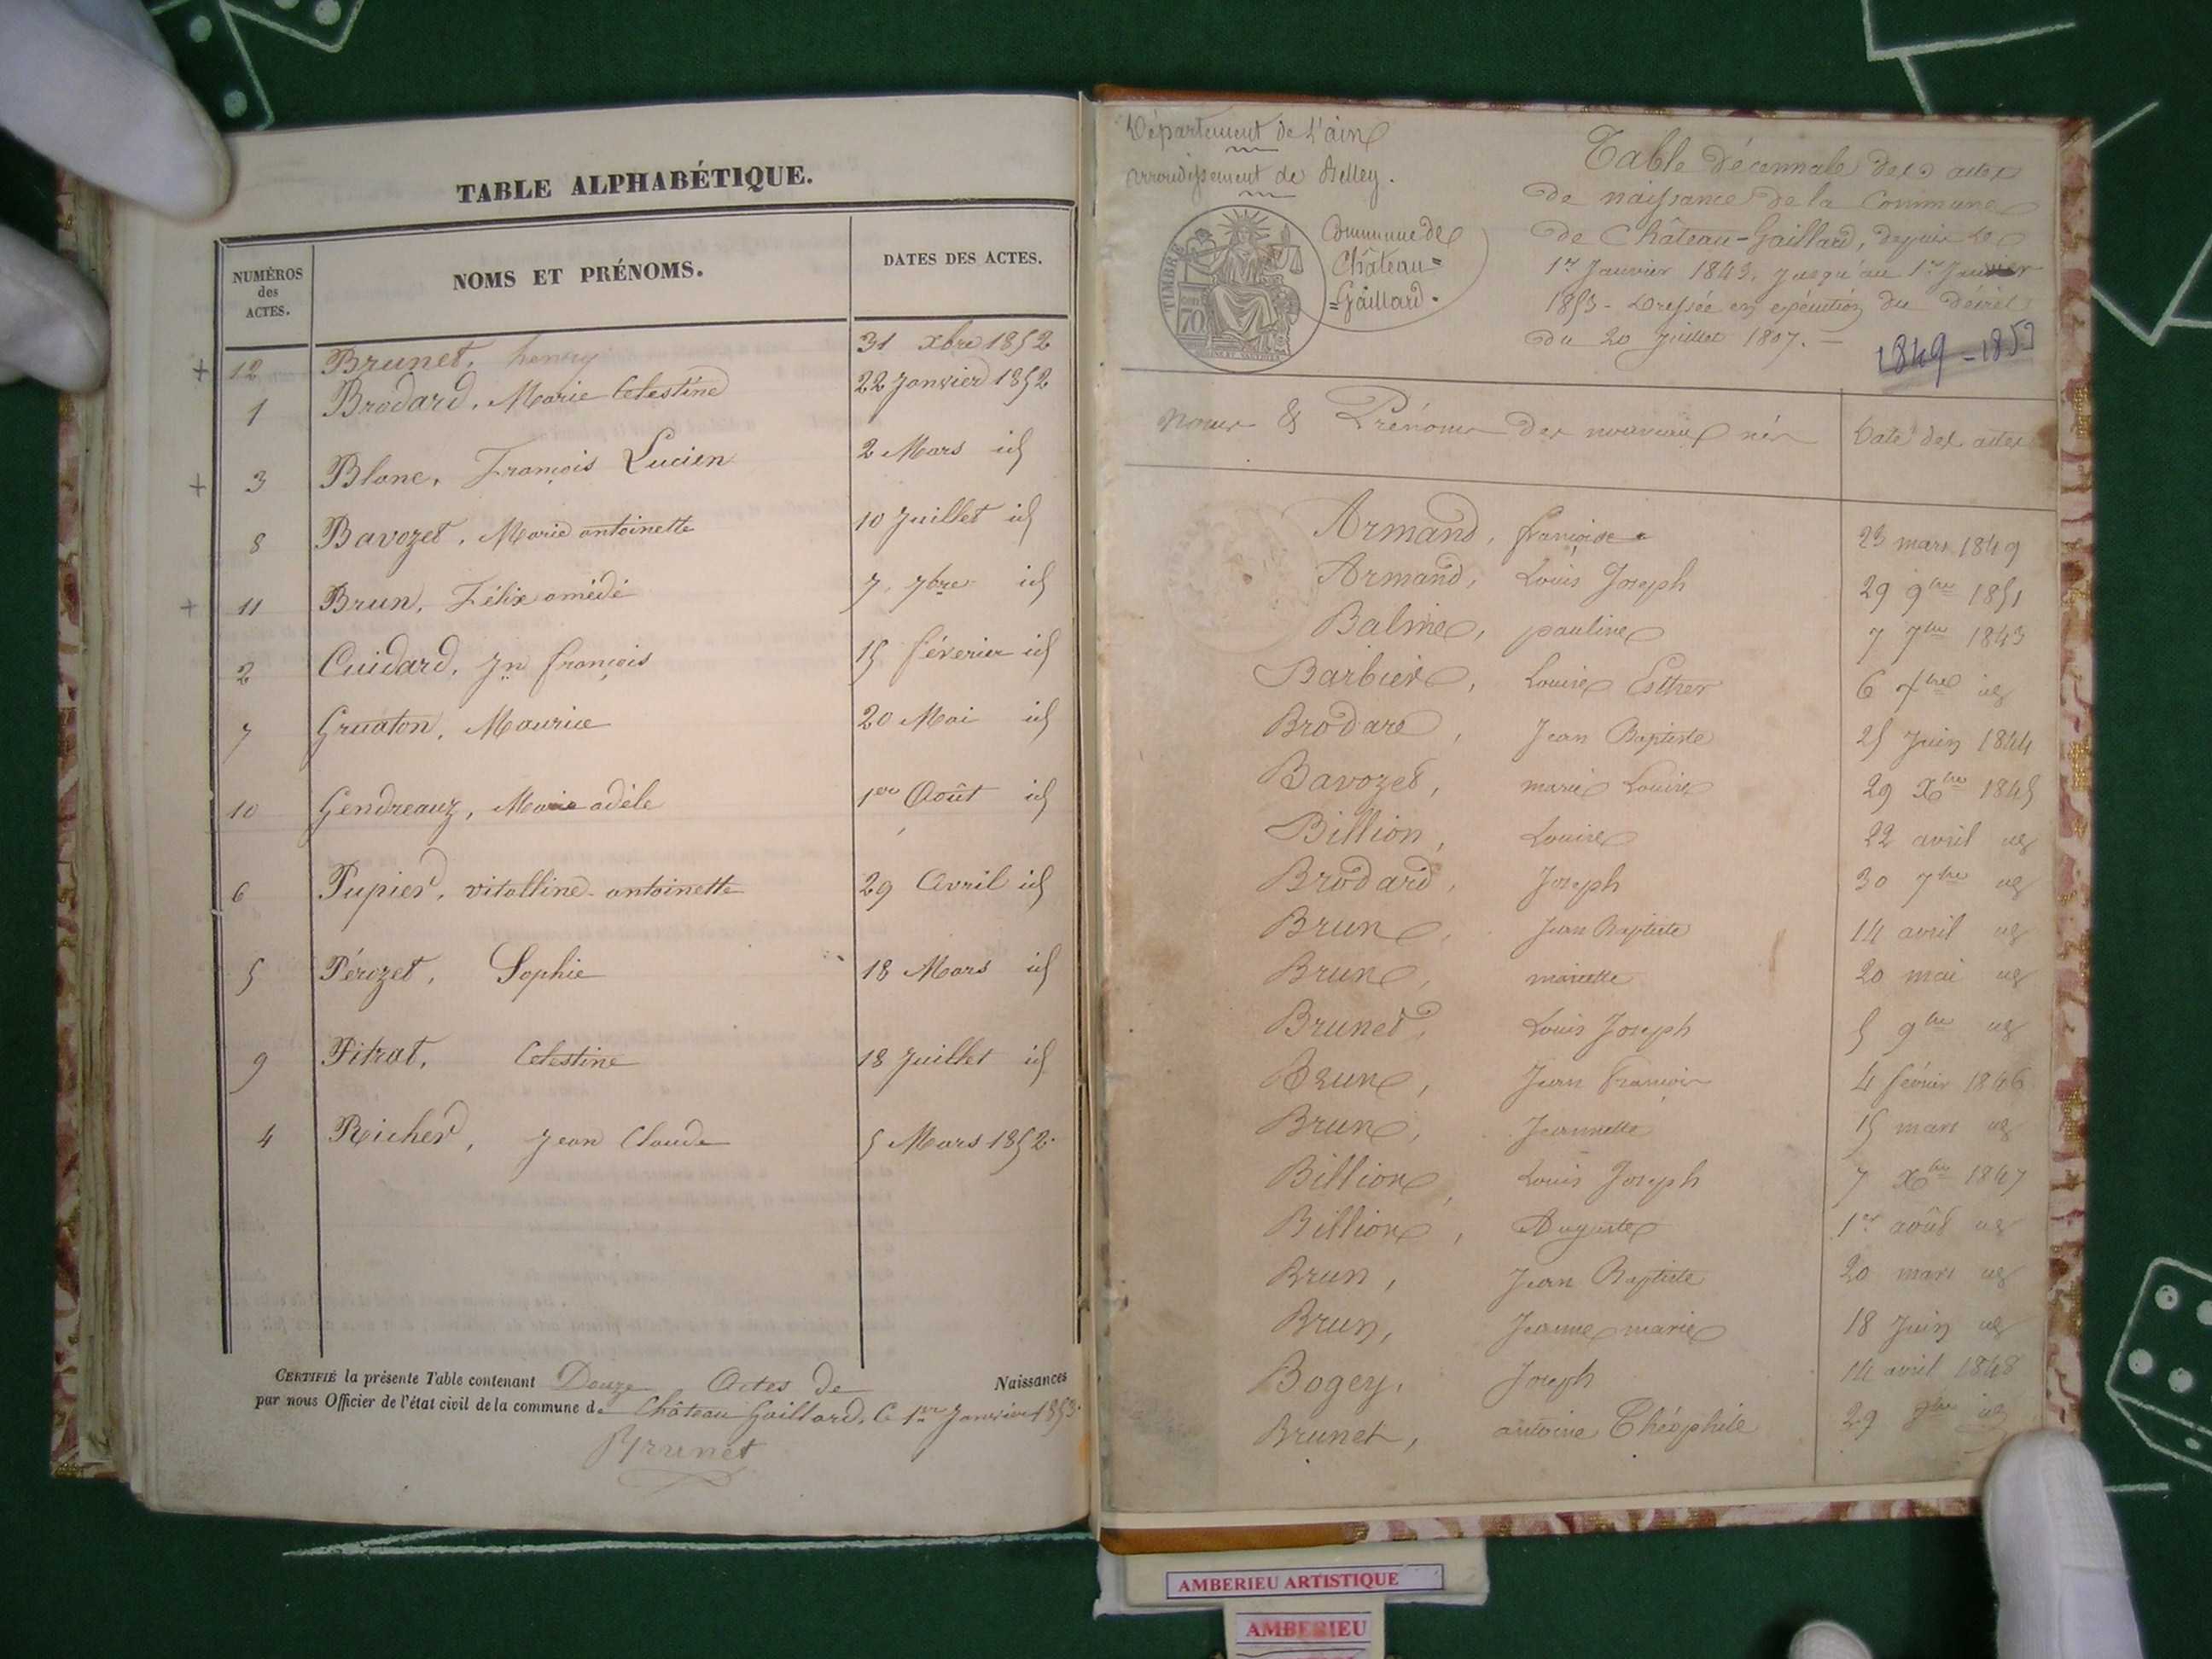 TABLE ALPHABÉTIQUE.
NUMÉROS des ACTES. NOMS ET PRÉNOMS. DATES DES ACTES.
+ 12 Brunet, henry 31 xbre 1852
1 Brodard, Marie Celestine 22 Janvier 1852
+ 3 Blanc, François Lucien 2 Mars id
8 Bavozet, Marie antoinette 10 Juillet id
+ 11 Brun, Félix amédé 7 7bre id
2 Cuidard, Jn françois 15 féverier id
7 Gruaton, Maurice 20 Mai id
10 Gendreau, Marie adèle 1er Août id
6 Pupier, vitalline antoinette 29 Avril id
5 Pérozet, Sophie 18 Mars id
9 Pitrat, Celestine 18 Juillet id
4 Richer, Jean Claude 5 Mars 1852.
CERTIFIÉ la présente Table contenant Douze Actes de Naissances
par nous Officier de l'état civil de la commune de Château Gaillard, le 1er Janvier 1853.
Brunet
Département de l'ain
arrondissement de Belley.
Commune de
Château=
=Gaillard.
TIMBRE
70
Table décennale des actes
de naissance de la Commune
de Château-Gaillard, depuis le
1er Janvier 1843, jusqu'au 1er Janvier
1853 - Dressée en exécution du décret
du 20 Juillet 1807. -
1849 - 1852
noms & Prénoms des nouveaux nés Date des actes
Armand, françoise 23 mars 1849
Armand, Louis Joseph 29 9bre 1851
Balme, pauline 7 7bre 1843
Barbier, Louise Esther 6 7bre id
Brodard, Jean Baptiste 25 Juin 1844
Bavozet, marie Louise 29 Xbre 1845
Billion, Louise 22 avril id
Brodard, Joseph 30 7bre id
Brun, Jean Baptiste 14 avril id
Brun, mariette 20 mai id
Brunet, Louis Joseph 5 9bre id
Brun, Jean François 4 février 1846
Brun, Jeannette 15 mars id
Billion, Louis Joseph 7 Xbre 1847
Billion, Auguste 1er août id
Brun, Jean Baptiste 20 mars id
Brun, Jeanne marie 18 Juin id
Bogey, Joseph 14 avril 1848
Brunet, antoine Théophile 29 id
AMBERIEU ARTISTIQUE
AMBERIEU